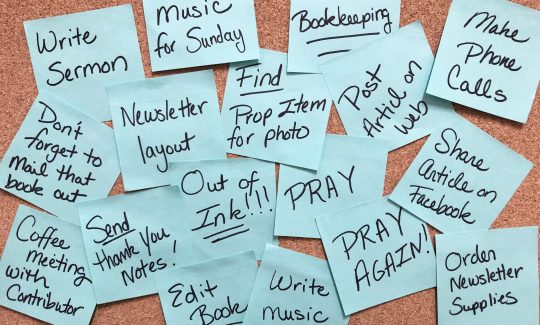 Write
Sermon
Music
for Sunday
Bookkeeping
Make
Phone
Calls
Newsletter
layout
Find
Prop Item
for photo
Post
Article on
Web
Don't
forget to
Mail that
book out
Out of
Ink!!!
PRAY
Share
Article on
Facebook
Coffee
meeting
with
Contributor
Send
thank You
Notes!
PRAY
AGAIN!
Order
Newsletter
Supplies
Edit
Book
Write
Music